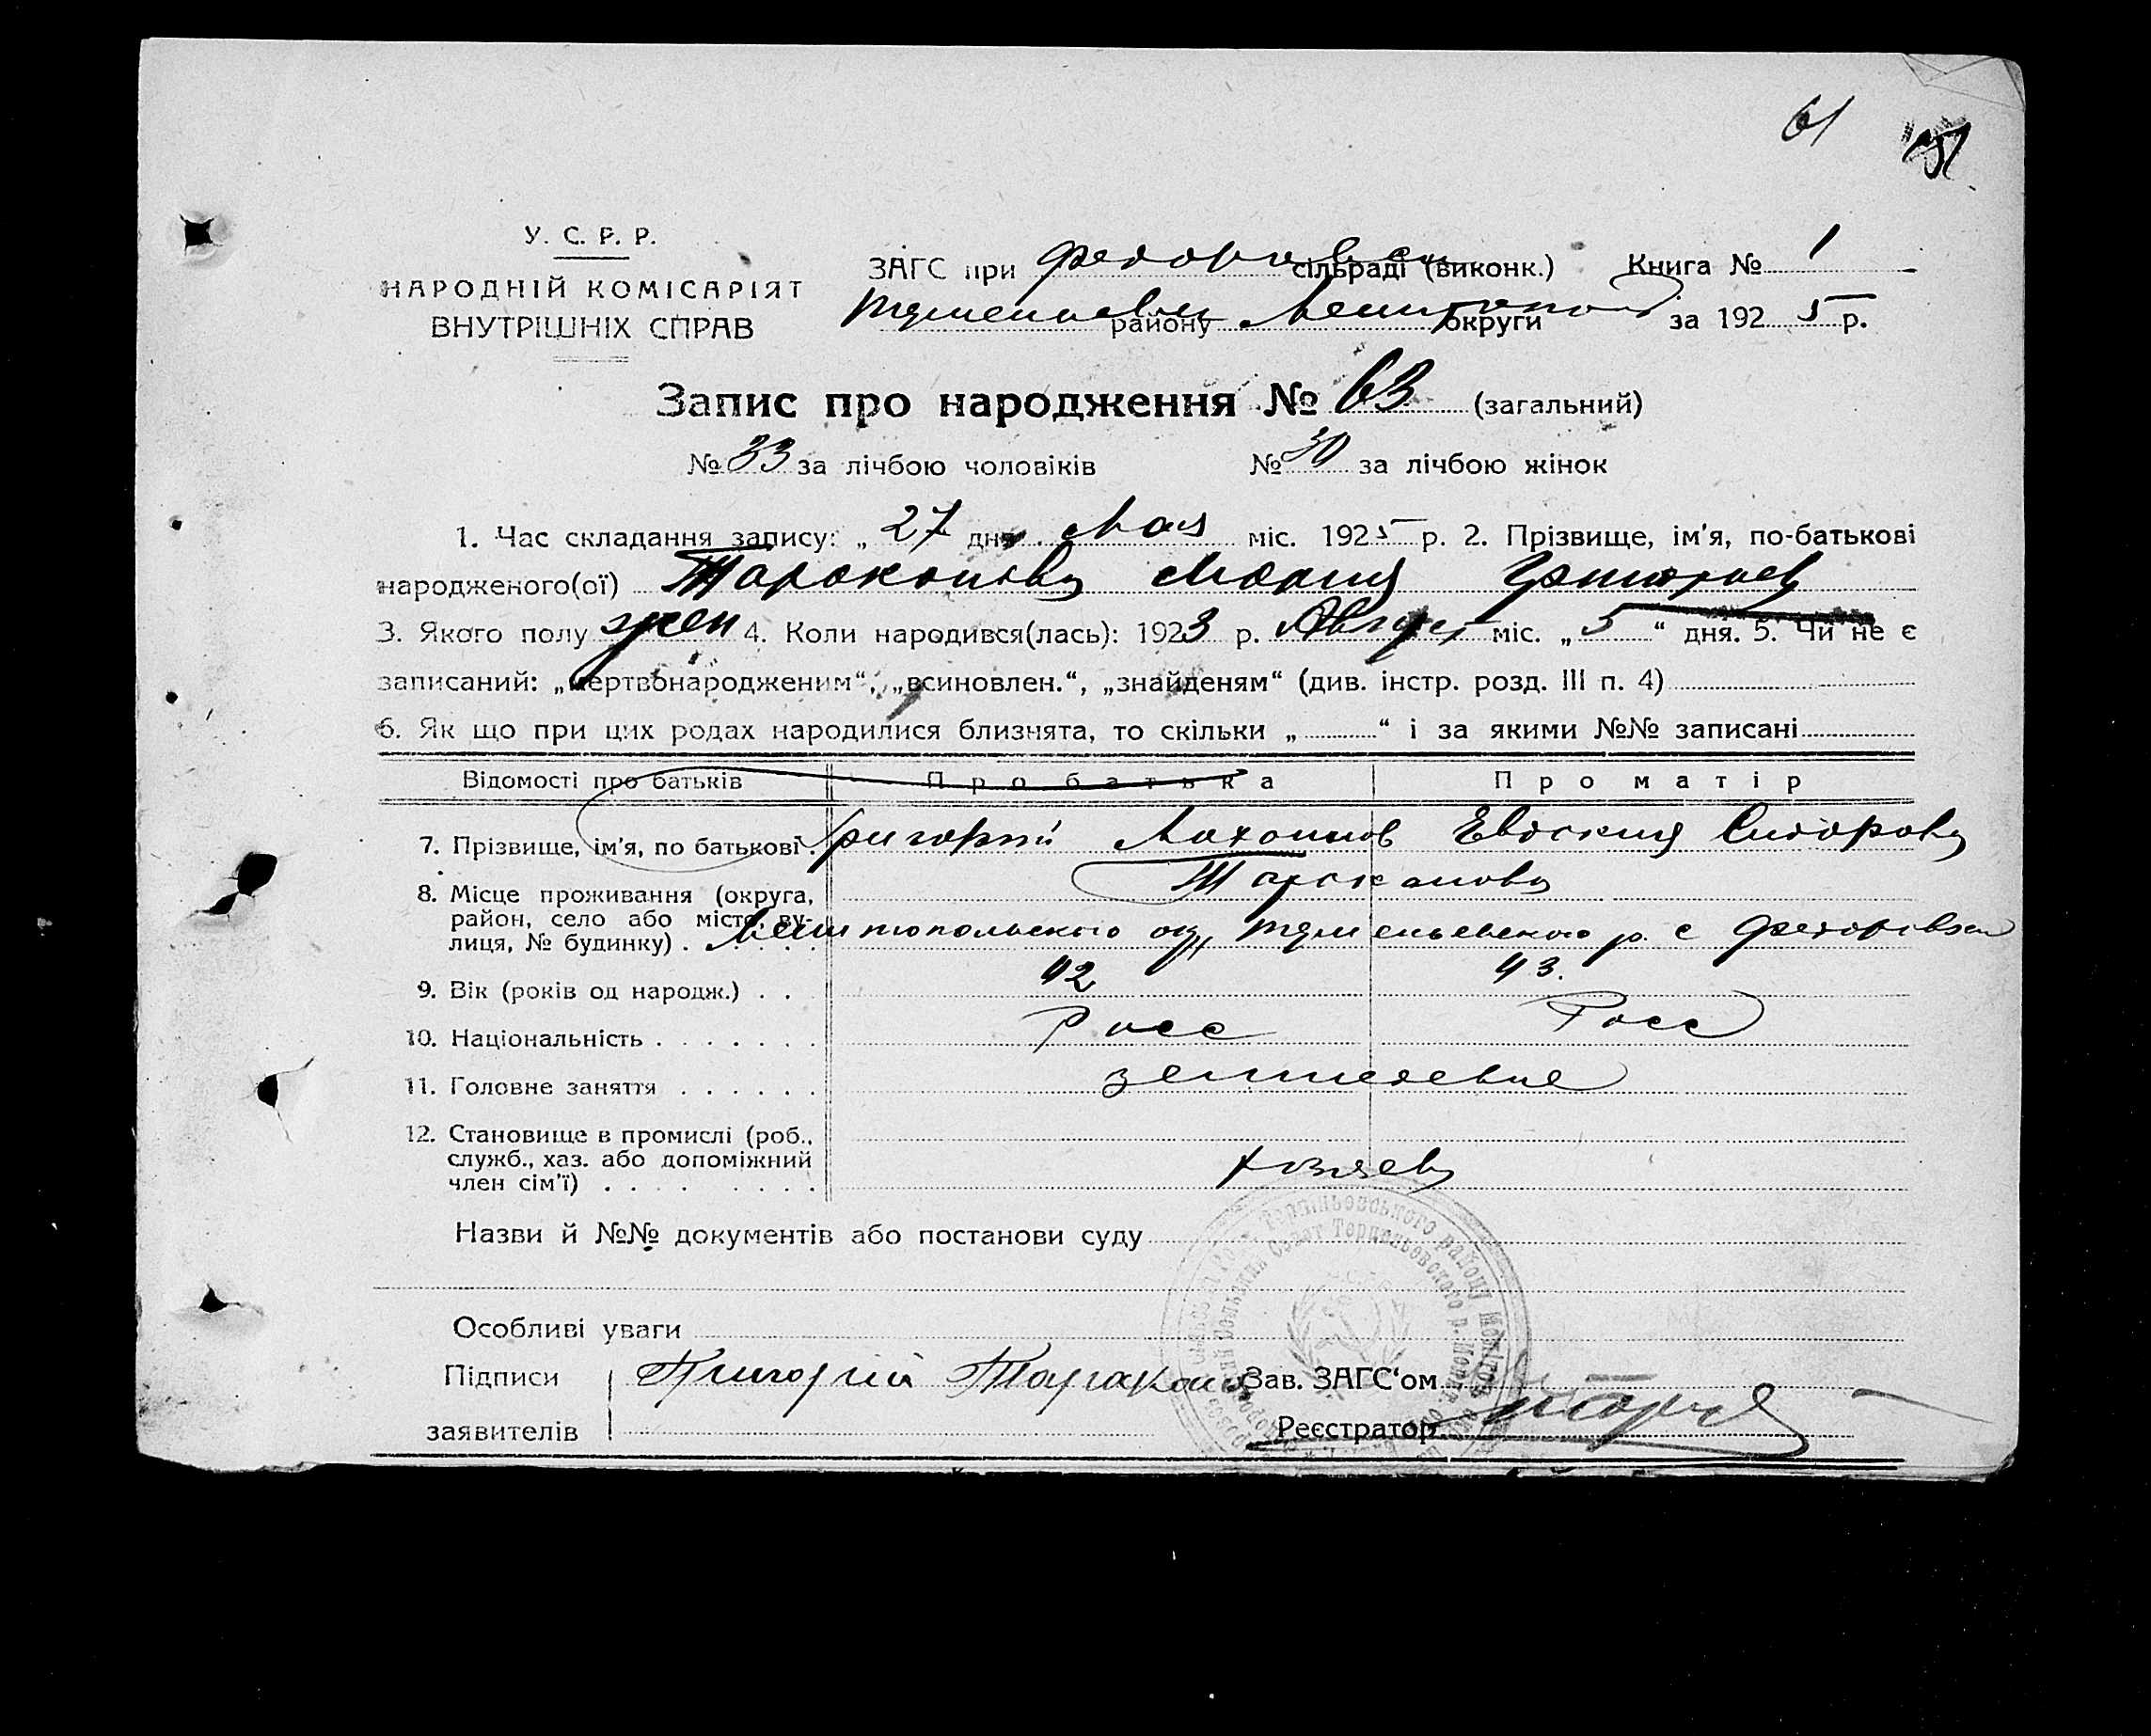 61
У. С. Р. Р.
НАРОДНІЙ КОМІСАРІЯТ
ВНУТРІШНІХ СПРАВ
ЗАГС при Федоровск сільраді (виконк.) Книга № 1
району Мелитопол округи за 1925 р.
Запис про народження № 63 (загальний)
№ 33 за лічбою чоловіків № 30 за лічбою жінок
1. Час складання запису: „ 27 дня Мая міс. 1925 р. 2. Прізвище, ім'я, по-батькові
народженого(ої) Таракановa Мария Григориев
3. Якого полу жен 4. Коли народився(лась): 1923 р. Август міс. „ 5 “ дня. 5. Чи не є
записаний: „мертвонародженим“, „всиновлен.“, „знайденям“ (див. інстр. розд. III п. 4)
6. Як що при цих родах народилися близнята, то скільки „ “ і за якими №№ записані
Відомості про батьків Про батька Про матір
7. Прізвище, ім'я, по батькові . Григорий Евдокия Сидорова
Тараканова
8. Місце проживання (округа,
район, село або місто, ву-
лиця, № будинку) . Мелитопольского окр р. с Федоровка
9. Вік (років од народж.) . . 42 43.
10. Національність . . . . . . . Росс Росс
11. Головне заняття . . . . . . земледелие
12. Становище в промислі (роб.,
служб., хаз. або допоміжний
член сім'ї) . . . . . . . . . хозяева
Назви й №№ документів або постанови суду
Особливі уваги
Підписи Григорій Таракано Зав. ЗАГС'ом
заявителів Реєстратор